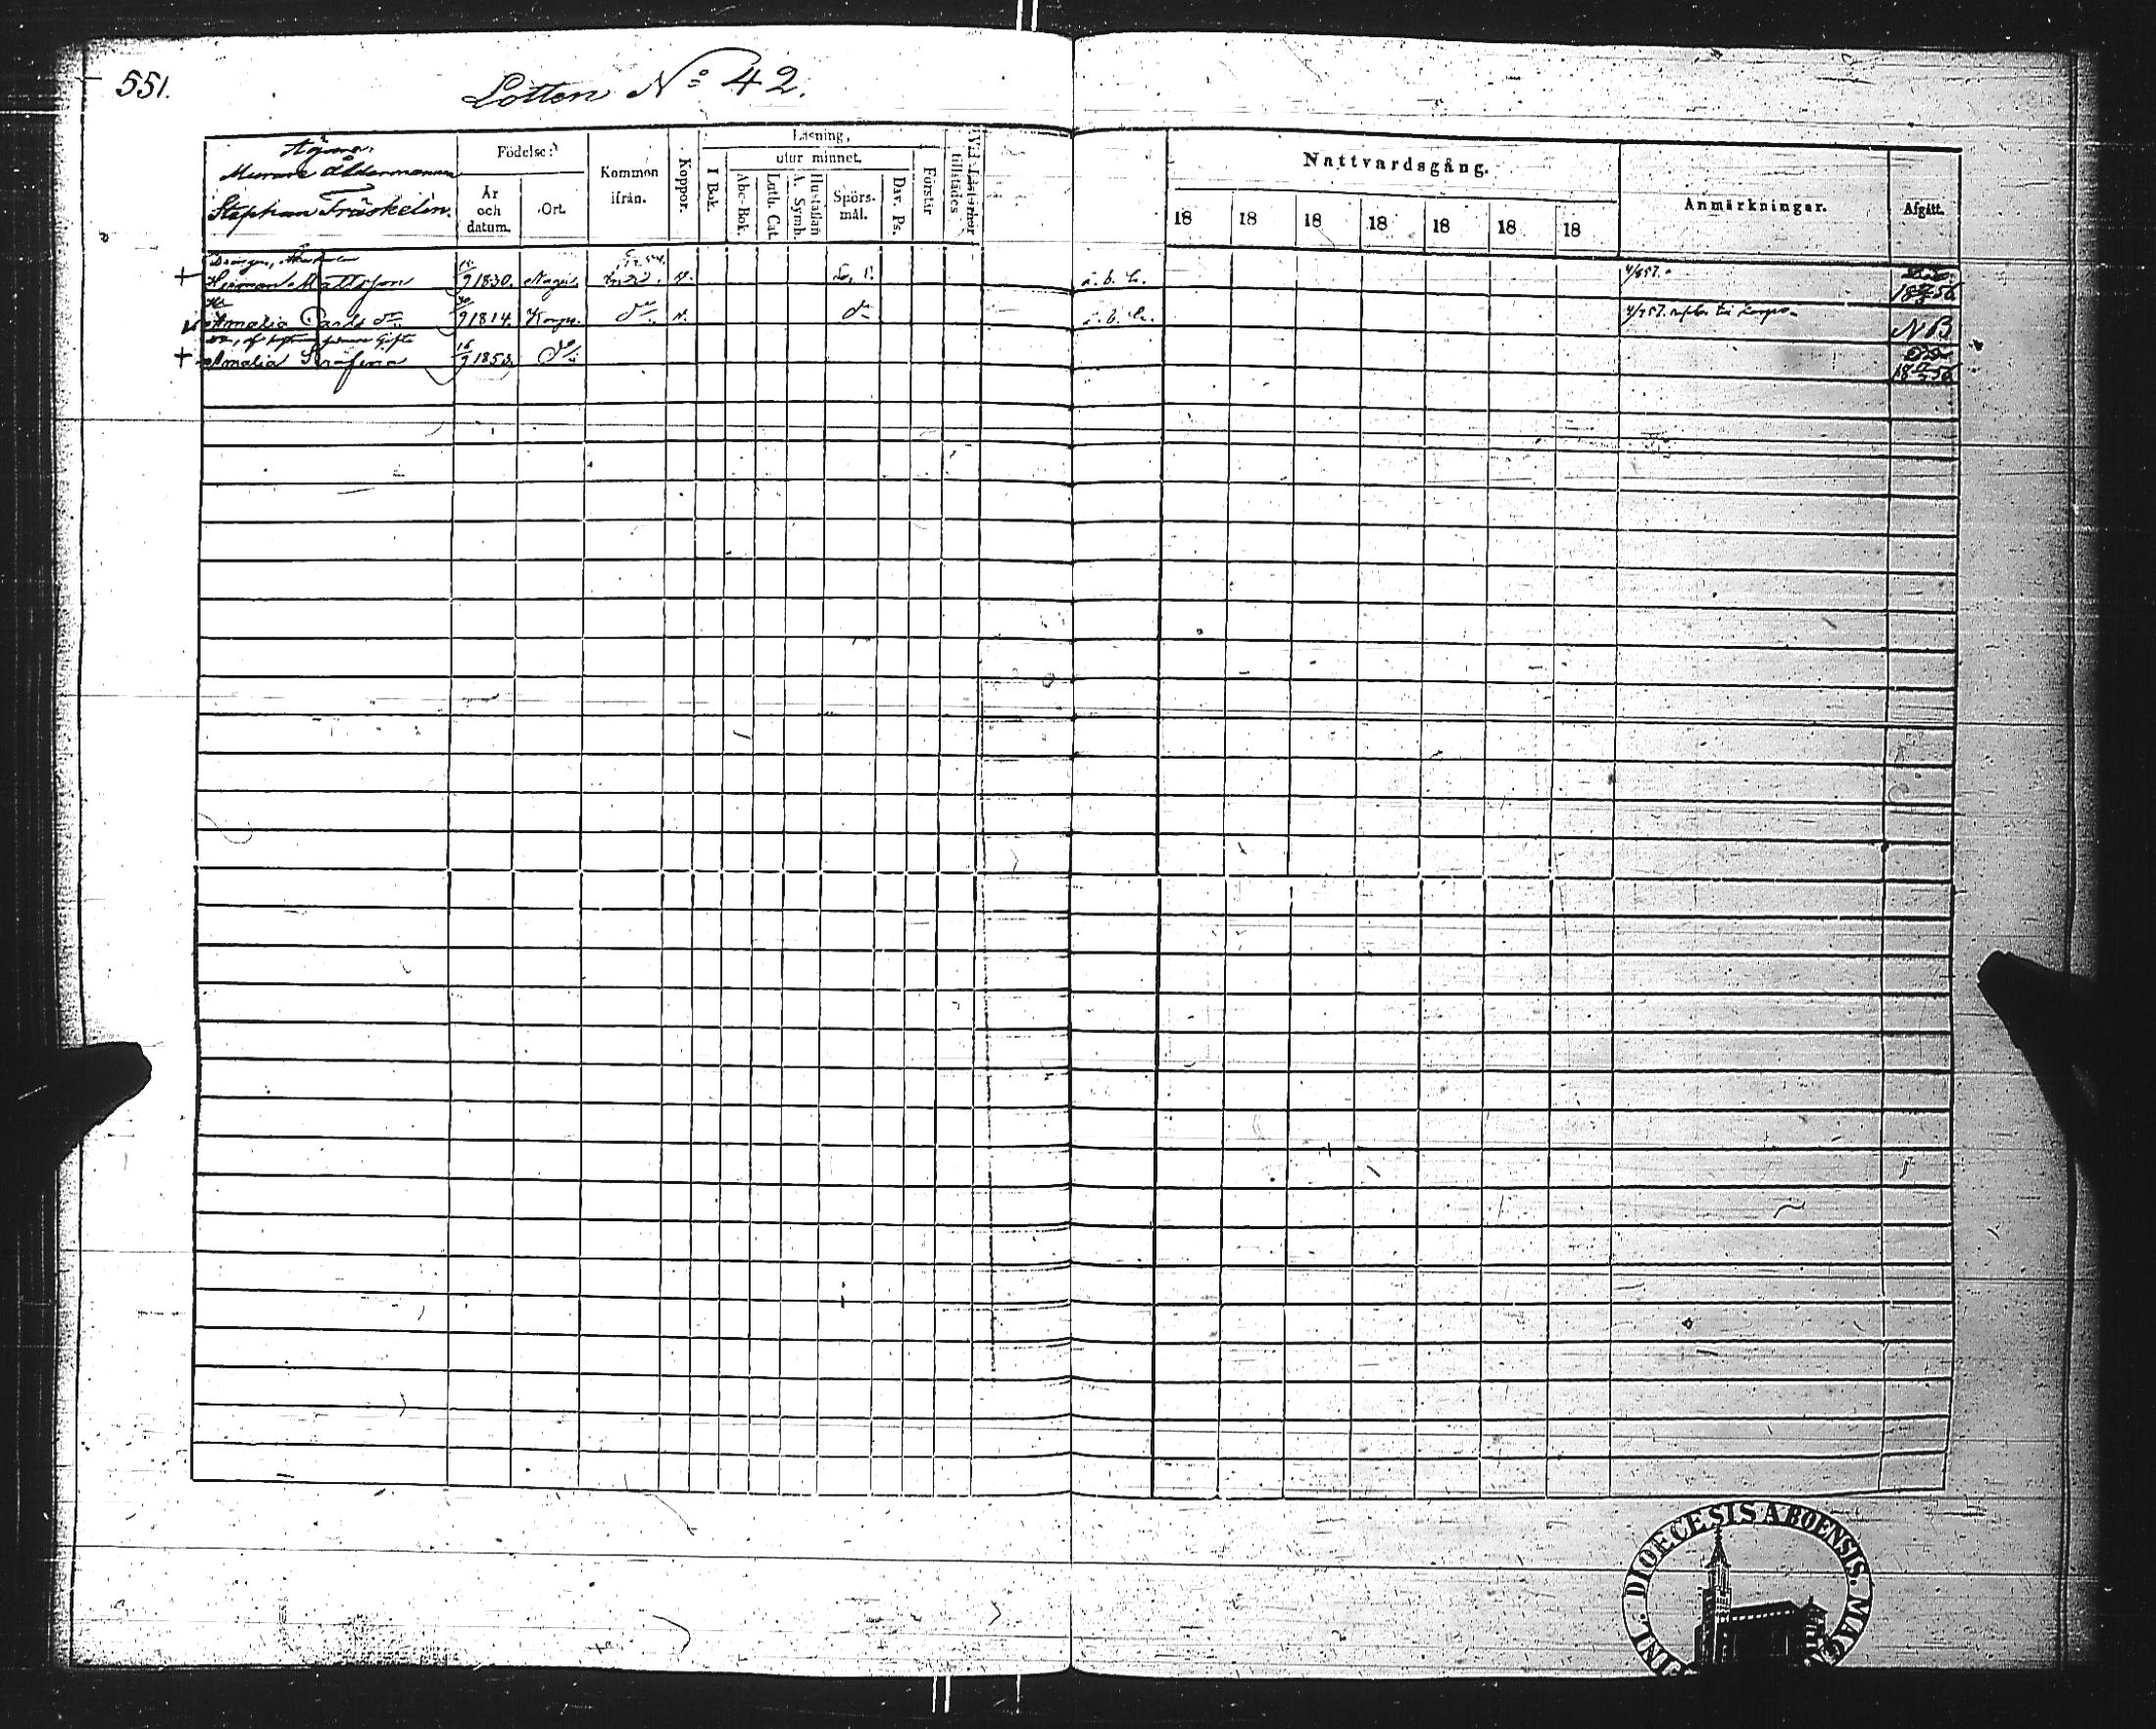 551.
Lotten No 42.
Ägare:
Murare Åldermannen
Stephan Träskelin.
Födelse:
År
och
datum.
Ort.
Kommen
ifrån.
Koppor.
Läsning,
I Bok.
utur minnet.
Abc-Bok.
Luth. Cat.
Hustaflan
A. Symb.
Spörs-
mål.
Dav. Ps.
Förstår
Vid Läsförhör
tillstädes
Nattvardsgång.
18 18 18 18 18 18 18
Anmärkningar.
Afgått.
Drängen,
+ Herman Mattsson 9 1830. Nagu. a. b. L. 4/857. 18 56
Amalia Carls dr 30/9 1814. Korpo. do do a. b. L. till Korpo. NB
+ Amalia Serafina 16/9 1853. do 18 56
DIOECESIS ABOENSIS.